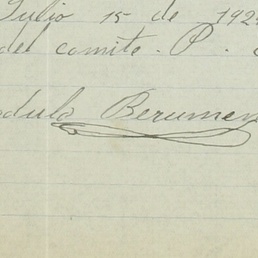 Julio 15 de 192
del comite. P.
dulo Berumen